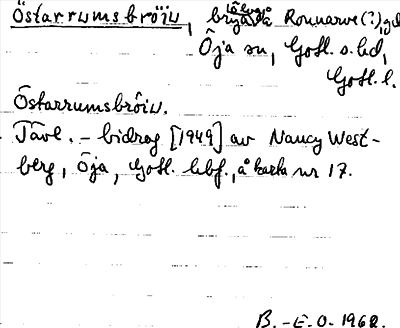 Östarrumsbröiu, brygåda Ronnarve (?), gd
Öja sn, Gotl. s. hd,
Gotl. l.
Östarrumsbrôiu.
Tävl. - bidrag [1949] av Nancy West-
berg, Öja, Gotl. hbf., å karta nr 17.
B. - E. O. 1968.